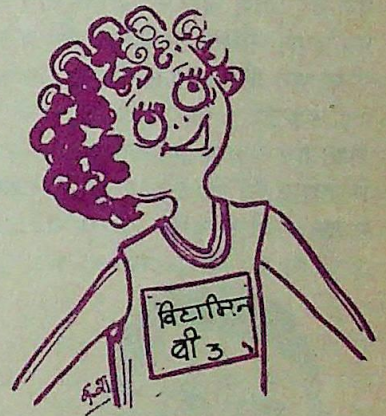 विटामिन
बी 3